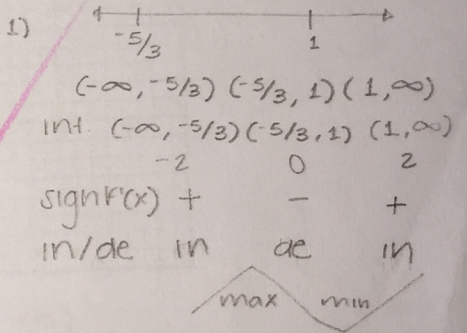 1)
-5/3 1
(-∞, -5/3) (-5/3, 1) (1, ∞)
int. (-∞, -5/3) (-5/3, 1) (1, ∞)
-2 0 2
sign f'(x) + - +
in/de in de in
max min